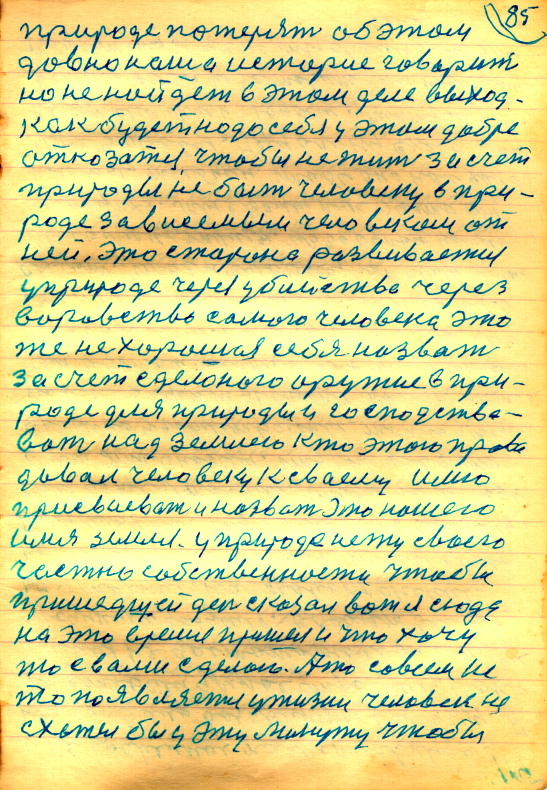 85
природе потерят об этом
довно наша историе говарит
но не нойдет в этом деле выход.
как будет нодо себя у этом добре
откозатся, чтобы не жит за счет
природы, не быт человеку в при-
роде зависемым человеком от
ней. Это старона развивается
у природе через убийства через
воравство самого человека это
же не хорошая себя назват
за счет сделоного оружие в при-
роде для природы и господства-
ват над землею кто этою
давал человеку к сваему имю
присваеват и назват это нашего
имя земля. у природе нету своего
частно собственности чтобы
пришедшей деп сказал вот я сюда
на это време пришел и что хочу
то с вами сделою. А то совсем не
то появляется у жизни человек не
схотел бы у эту минуту чтобы